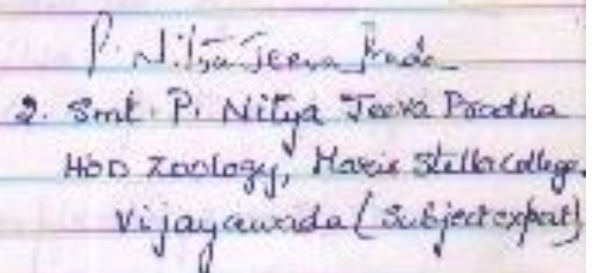 P. Nitya Jeeva Prada
2. Smt. P. Nitya Jeeva Pradha
HOD Zoology, Maris Stella College,
Vijayawada (Subject expert)